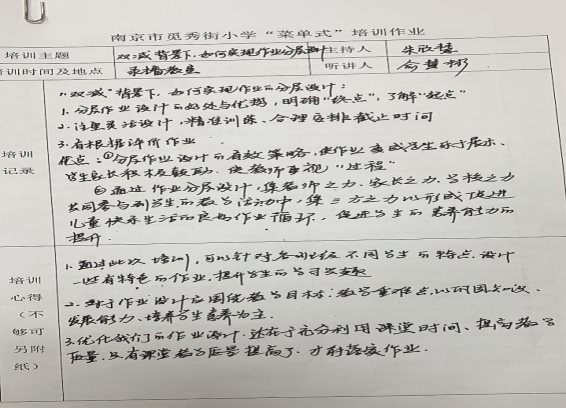 南京市觅秀街小学“菜单式”培训作业
培训主题 双减背景下,如何实现作业分层设计 主持人 朱欣
培训时间及地点 录播教室 听讲人 俞慧彬
培训记录
“双减”背景下,如何实现作业的分层设计:
1.分层作业设计的好处与优势,明确“终点”,了解“起点”
2.注重灵活设计,精准训练、合理安排截止时间
3.有根据评价作业
优点:①分层作业设计的有效策略,使作业变成学生乐于展示、
学生家长积极鼓励、使教师重视“过程”
②通过作业分层设计,集教师之力、家长之力、学校之力
共同参与到学生的教学活动中,集三方之力以形成促进
儿童快乐生活的良好作业循环,促进学生的素养能力的
提升.
培训心得(不够可另附纸)
1.通过此次培训,可以针对各班级不同学生的特点,设计
一些有特色的作业,提升学生的学习兴趣
2.对于作业设计应围绕教学目标,教学重难点,以巩固知识、
发展能力、培养学生素养为主.
3.优化我们的作业设计.还在于充分利用课堂时间、提高教学
质量,只有课堂教学质量提高了,才能落实作业.